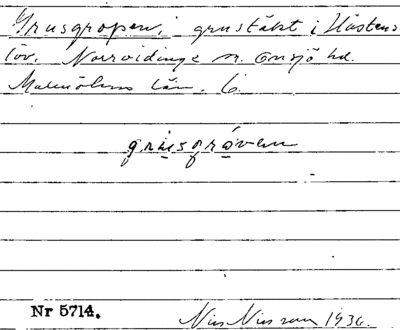 Grusgropen, grustäkt i Hästens
löv. Norrvidinge sn. Onsjö hd.
Malmöhus län. 6.
grusgråven
Nr 5714.
Nils Nilsson 1936.